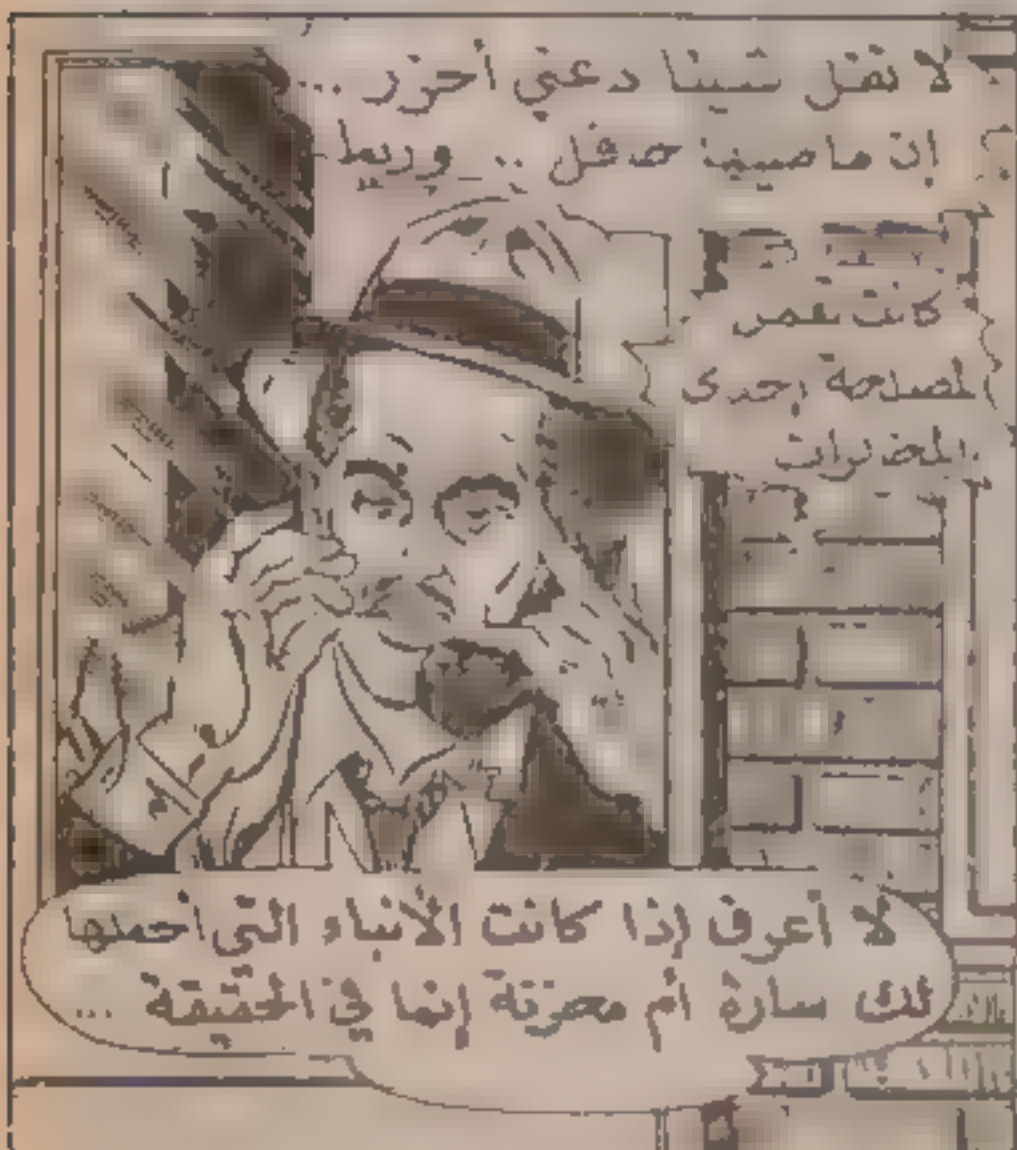 لا تقل شيئا دعني أحزر ...
إن ماضيها حافل .. وربما
كانت تعمل
لمصلحة إحدى
المخابرات
لا أعرف إذا كانت الأنباء التي أحملها
لك سارة أم محزنة إنما في الحقيقة ...